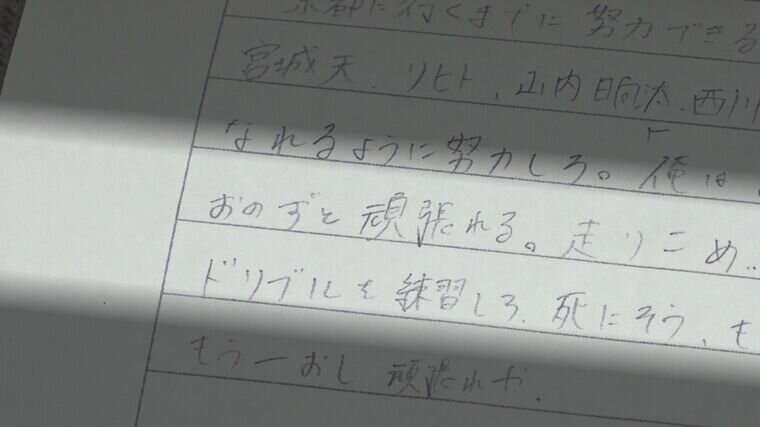 京都に行くまでに努力できる
宮城天、リヒト、山内日向汰、西川
なれるように努力しろ。俺は
おのずと頑張れる。走りこめ、
ドリブルを練習しろ、死にそう、も
もう一おし頑張れや、